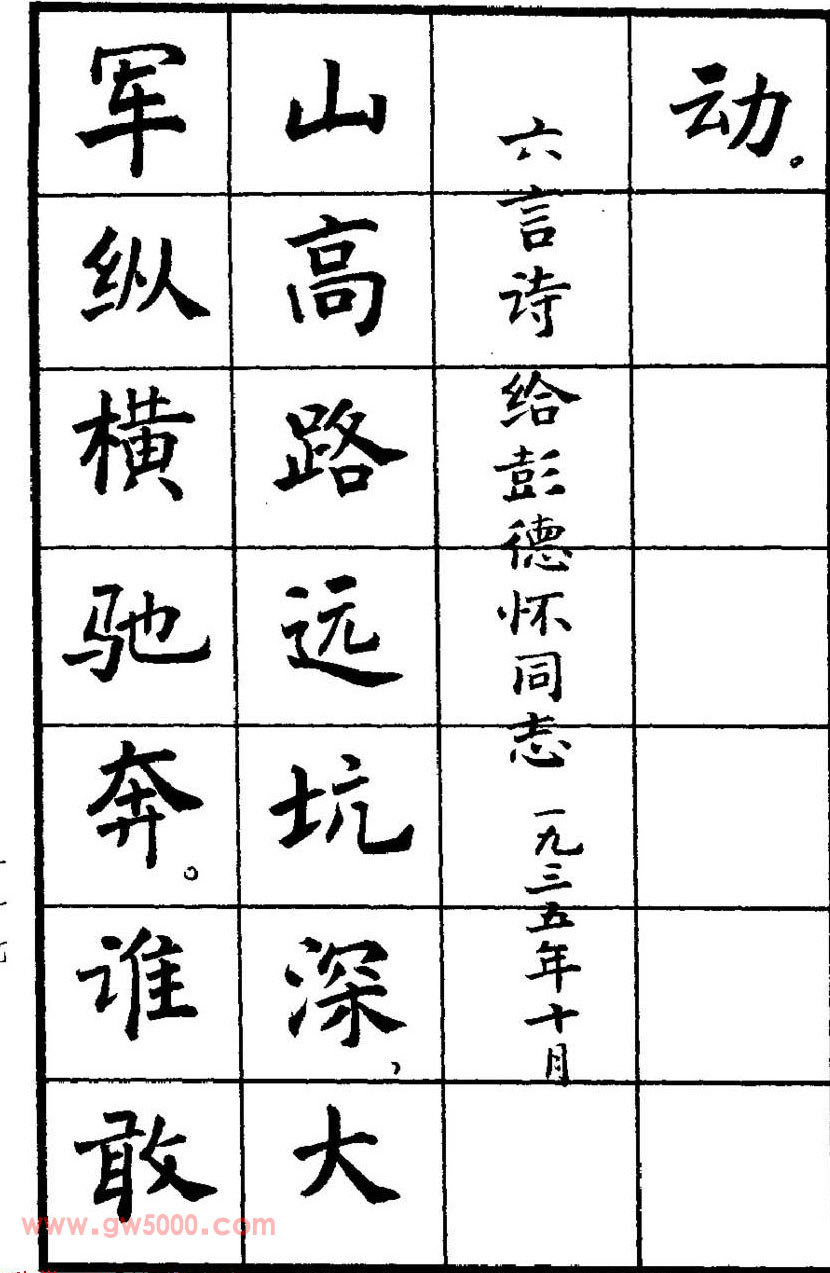 动。
六言诗 给彭德怀同志 一九三五年十月
山高路远坑深，大
军纵横驰奔。谁敢
www.gw5000.com